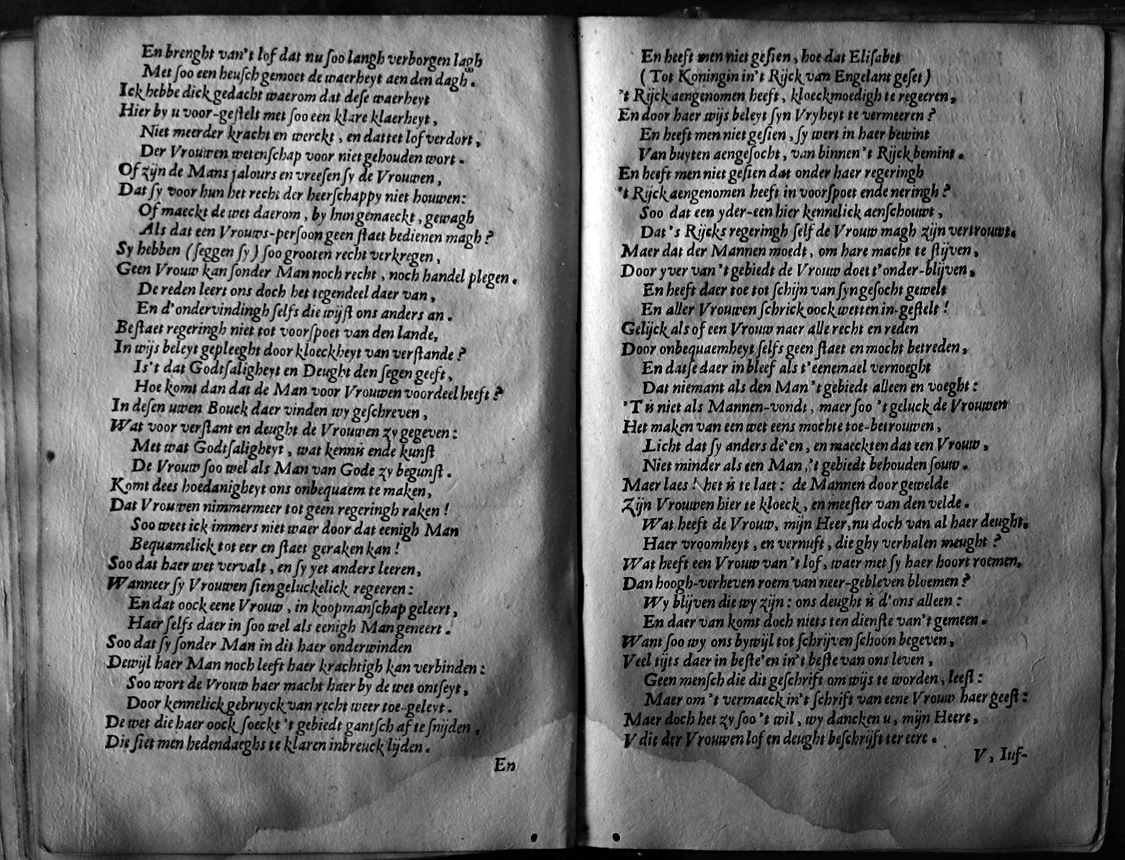 En brenght van't lof dat nu soo langh verborgen lagh
Met soo een heusch gemoet de waerheyt aen den dagh.
Ick hebbe dick gedacht waerom dat dese waerheyt
Hier by u voor-gestelt met soo een klare klaerheyt,
Niet meerder kracht en werckt, en dattet lof verdort,
Der Vrouwen wetenschap voor niet gehouden wort.
Of zijn de Mans jalours en vreesen sy de Vrouwen,
Dat sy voor hun het recht der heerschappy niet houwen:
Of maeckt de wet daerom, by hun gemaeckt, gewagh
Als dat een Vrouws-persoon geen staet bedienen magh?
Sy hebben (seggen sy) soo grooten recht verkregen,
Geen Vrouw kan sonder Man noch recht, noch handel plegen.
De reden leert ons doch het tegendeel daer van,
En d'ondervindingh selfs die wijst ons anders an.
Bestaet regeringh niet tot voorspoet van den lande,
In wijs beleyt gepleeght door kloeckheyt van verstande?
Is't dat Godtsaligheyt en Deught den segen geeft,
Hoe komt dan dat de Man voor Vrouwen voordeel heeft?
In desen uwen Bouck daer vinden wy geschreven,
Wat voor verstant en deught de Vrouwen zy gegeven:
Met wat Godtsaligheyt, wat kennis ende kunst
De Vrouw soo wel als Man van Gode zy begunst.
Komt dees hoedanigheyt ons onbequaem te maken,
Dat Vrouwen nimmermeer tot geen regeringh raken!
Soo weet ick immers niet waer door dat eenigh Man
Bequamelick tot eer en staet geraken kan!
Soo dat haer wet vervalt, en sy yet anders leeren,
Wanneer sy Vrouwen sien geluckelick regeeren:
En dat oock eene Vrouw, in koopmanschap geleert,
Haer selfs daer in soo wel als eenigh Man geneert.
Soo dat sy sonder Man in dit haer onderwinden
Dewijl haer Man noch leeft haer krachtigh kan verbinden:
Soo wort de Vrouw haer macht haer by de wet ontseyt,
Door kennelick gebruyck van recht weer toe-geleyt.
De wet die haer oock soeckt 't gebiedt gantsch af te snijden,
Die siet men hedendaeghs te klaren inbreuck lijden.
En
En heeft men niet gesien, hoe dat Elisabet
(Tot Koningin in't Rijck van Engelant geset)
't Rijck aengenomen heeft, kloeckmoedigh te regeeren,
En door haer wijs beleyt syn Vryheyt te vermeeren?
En heeft men niet gesien, sy wert in haer bewint
Van buyten aengesocht, van binnen 't Rijck bemint.
En heeft men niet gesien dat onder haer regeringh
't Rijck aengenomen heeft in voorspoet ende neringh?
Soo dat een yder-een hier kennelick aenschouwt,
Dat 's Rijcks regeringh self de Vrouw magh zijn vertrouwt.
Maer dat der Mannen moedt, om hare macht te stijven,
Door yver van't gebiedt de Vrouw doet t'onder-blijven,
En heeft daer toe tot schijn van syn gesocht gewelt
En aller Vrouwen schrick oock wetten in-gestelt!
Gelijck als of een Vrouw naer alle recht en reden
Door onbequaemheyt selfs geen staet en mocht betreden,
En datse daer in bleef als t'eenemael vernoeght
Dat niemant als den Man 't gebiedt alleen en voeght:
'Tis niet als Mannen-vondt, maer soo 't geluck de Vrouwen
Het maken van een wet eens mochte toe-betrouwen,
Licht dat sy anders de'en, en maeckten dat een Vrouw,
Niet minder als een Man, 't gebiedt behouden souw.
Maer laes! het is te laet: de Mannen door gewelde
Zijn Vrouwen hier te kloeck, en meester van den velde.
Wat heeft de Vrouw, mijn Heer, nu doch van al haer deught,
Haer vroomheyt, en vernuft, die ghy verhalen meught?
Wat heeft een Vrouw van't lof, waer met sy haer hoort roemen,
Dan hoogh-verheven roem van neer-gebleven bloemen?
Wy blijven die wy zijn: ons deught is d'ons alleen:
En daer van komt doch niets ten dienste van't gemeen.
Want soo wy ons bywijl tot schrijven schoon begeven,
Veel tijts daer in beste'en in't beste van ons leven,
Geen mensch die dit geschrift om wijs te worden, leest:
Maer om 't vermaeck in't schrift van eene Vrouw haer geest:
Maer doch het zy soo 't wil, wy dancken u, mijn Heere,
V die der Vrouwen lof en deught beschrijft ter eere.
V, Iuf-